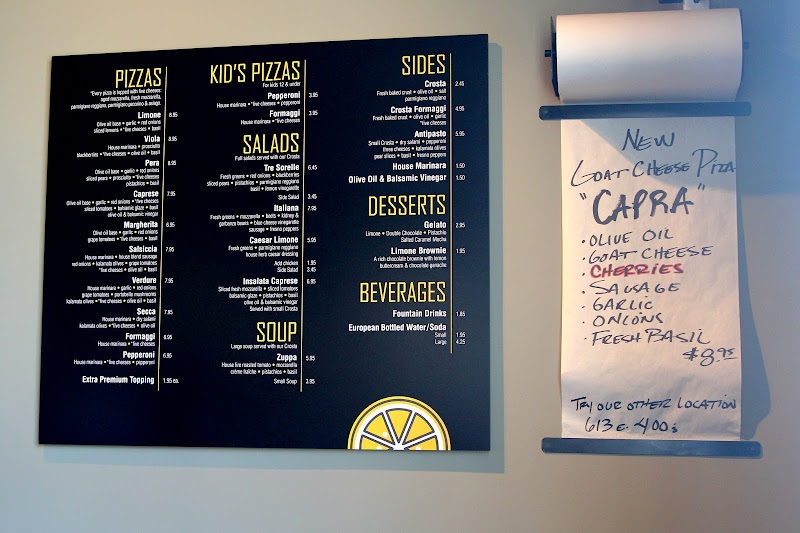 PIZZAS
*Every pizza is topped with five cheeses:
aged mozzarella, fresh mozzarella,
parmigiano reggiano, parmigiano pecorino & asiago.
Limone 8.95
Olive oil base • garlic • red onions
sliced lemons • *five cheeses • basil
Viola 8.95
House marinara • prosciutto
blackberries • *five cheeses • olive oil • basil
Pera 8.95
Olive oil base • garlic • red onions
sliced pears • prosciutto • *five cheeses
pistachios • basil
Caprese 7.95
Olive oil base • garlic • red onions • *five cheeses
sliced tomatoes • balsamic glaze • basil
olive oil & balsamic vinegar
Margherita 6.95
Olive oil base • garlic • red onions
grape tomatoes • *five cheeses • basil
Salsiccia 7.95
House marinara • house blend sausage
red onions • kalamata olives • grape tomatoes
*five cheeses • olive oil • basil
Verdure 7.95
House marinara • garlic • red onions
grape tomatoes • portobello mushrooms
kalamata olives • *five cheeses • olive oil • basil
Secca 7.95
House marinara • dry salami
kalamata olives • *five cheeses • olive oil
Formaggi 6.95
House marinara • *five cheeses
Pepperoni 6.95
House marinara • *five cheeses • pepperoni
Extra Premium Topping 1.95 ea.
KID'S PIZZAS
For kids 12 & under
Pepperoni 3.95
House marinara • *five cheeses • pepperoni
Formaggi 3.95
House marinara • *five cheeses
SALADS
Full salads served with our Crosta
Tre Sorelle 6.45
Fresh greens • red onions • blackberries
sliced pears • pistachios • parmigiano reggiano
basil • lemon vinaigrette
Side Salad 3.45
Italiana 7.95
Fresh greens • mozzarella • beets • kidney &
garbanzo beans • blue cheese vinaigrette
sausage • fresno peppers
Caesar Limone 5.95
Fresh greens • parmigiano reggiano
house herb caesar dressing
Add chicken 1.95
Side Salad 3.45
Insalata Caprese 6.95
Sliced fresh mozzarella • sliced tomatoes
balsamic glaze • pistachios • basil
olive oil & balsamic vinegar
Served with small Crosta
SOUP
Large soup served with our Crosta
Zuppa 5.95
House fire roasted tomato • mozzarella
crème fraîche • pistachios • basil
Small Soup 3.95
SIDES
Crosta 2.45
Fresh baked crust • olive oil • salt
parmigiano reggiano
Crosta Formaggi 4.95
Fresh baked crust • olive oil • garlic
*five cheeses
Antipasto 5.95
Small Crosta • dry salami • pepperoni
three cheeses • kalamata olives
pear slices • basil • fresno peppers
House Marinara 1.50
Olive Oil & Balsamic Vinegar 1.50
DESSERTS
Gelato 2.95
Limone • Double Chocolate • Pistachio
Salted Caramel Mocha
Limone Brownie 1.95
A rich chocolate brownie with lemon
buttercream & chocolate ganache
BEVERAGES
Fountain Drinks 1.85
European Bottled Water/Soda
Small 1.95
Large 4.25
NEW
GOAT CHEESE PIZZA
"CAPRA"
• OLIVE OIL
• GOAT CHEESE
• CHERRIES
• SAUSAGE
• GARLIC
• ONIONS
• FRESH BASIL
$8.95
TRY OUR OTHER LOCATION
613 E. 400 S